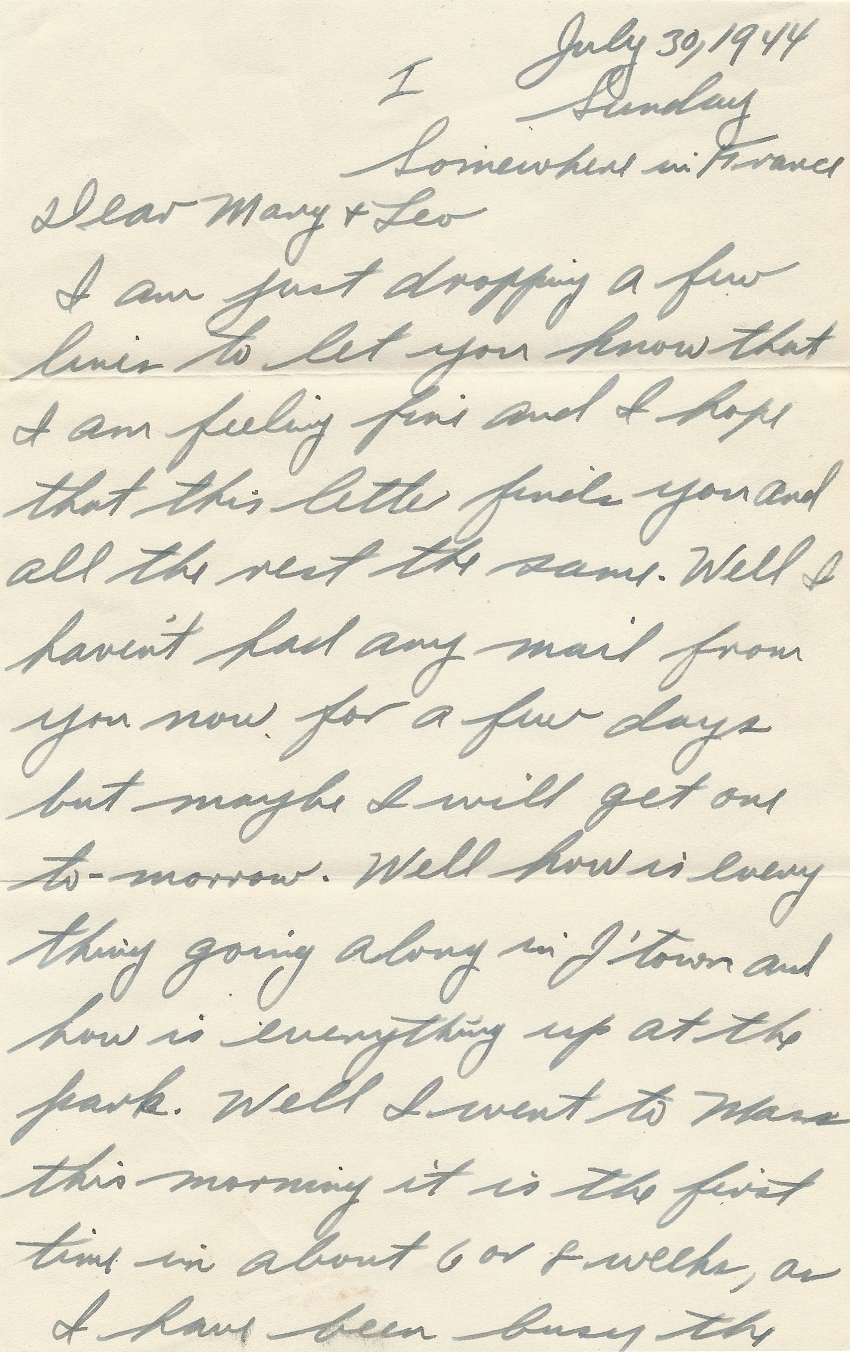 July 30, 1944
I
Sunday
Somewhere in France
Dear Mary + Leo
I am just dropping a few
lines to let you know that
I am feeling fine and I hope
that this letter finds you and
all the rest the same. Well I
haven't had any mail from
you now for a few days
but maybe I will get one
to-morrow. Well how is every
thing going along in J'town and
how is everything up at the
park. Well I went to Mass
this morning it is the first
time in about 6 or 8 weeks, as
I have been busy the